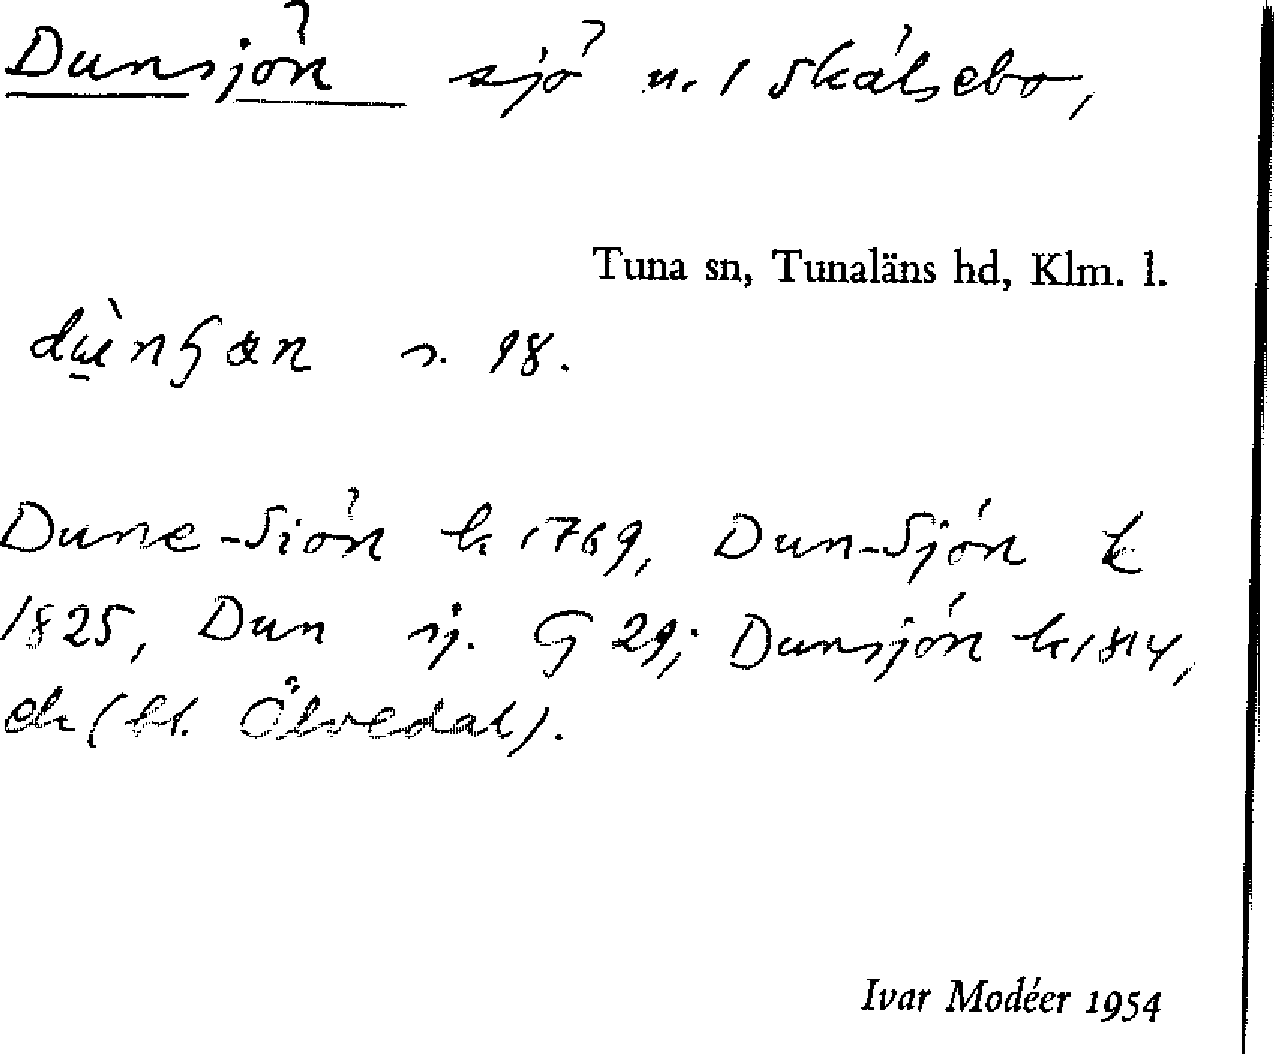 Dunsjön sjö n. / Skålsebo,
Tuna sn, Tunaläns hd, Klm. l.
s. 98.
Dune-Siön k 1769, Dun-Sjön k
1825, Dun sj. G 29; Dunsjön k 1814,
ek (bl. Ölvedal).
Ivar Modéer 1954